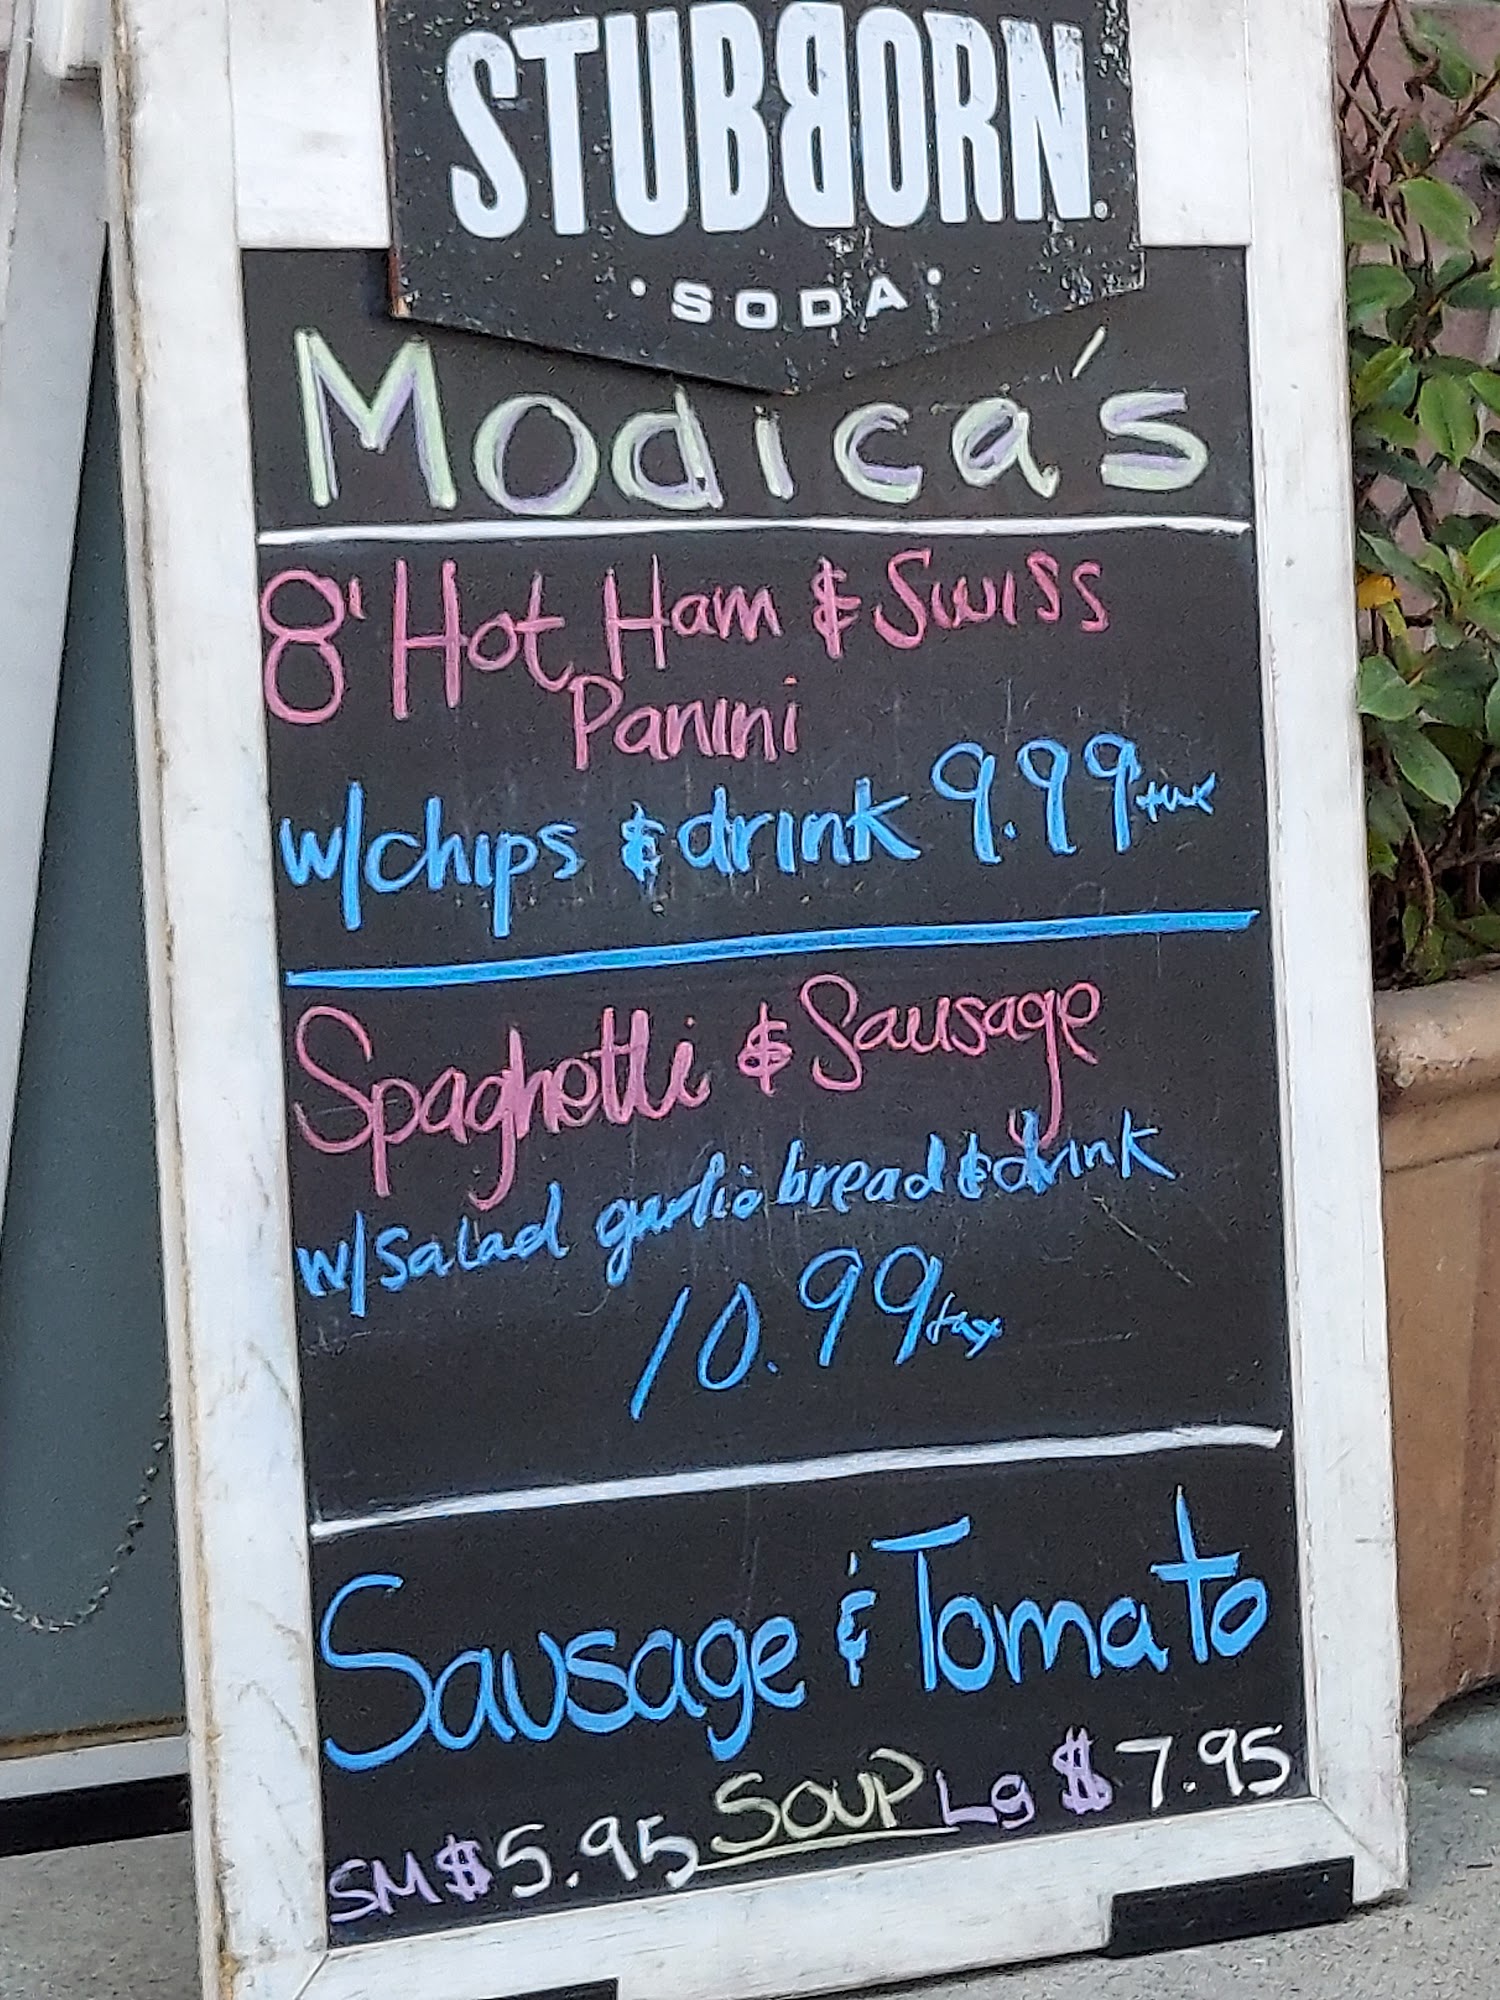 STUBBORN
• SODA •
Modica's
8' Hot Ham & Swiss
Panini
w/chips & drink 9.99 tax
Spaghetti & Sausage
w/Salad garlic bread & drink
10.99 tax
Sausage & Tomato
SM $5.95 SOUP Lg $7.95